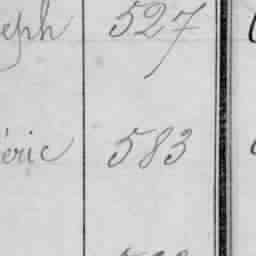 eph 527
éric 583